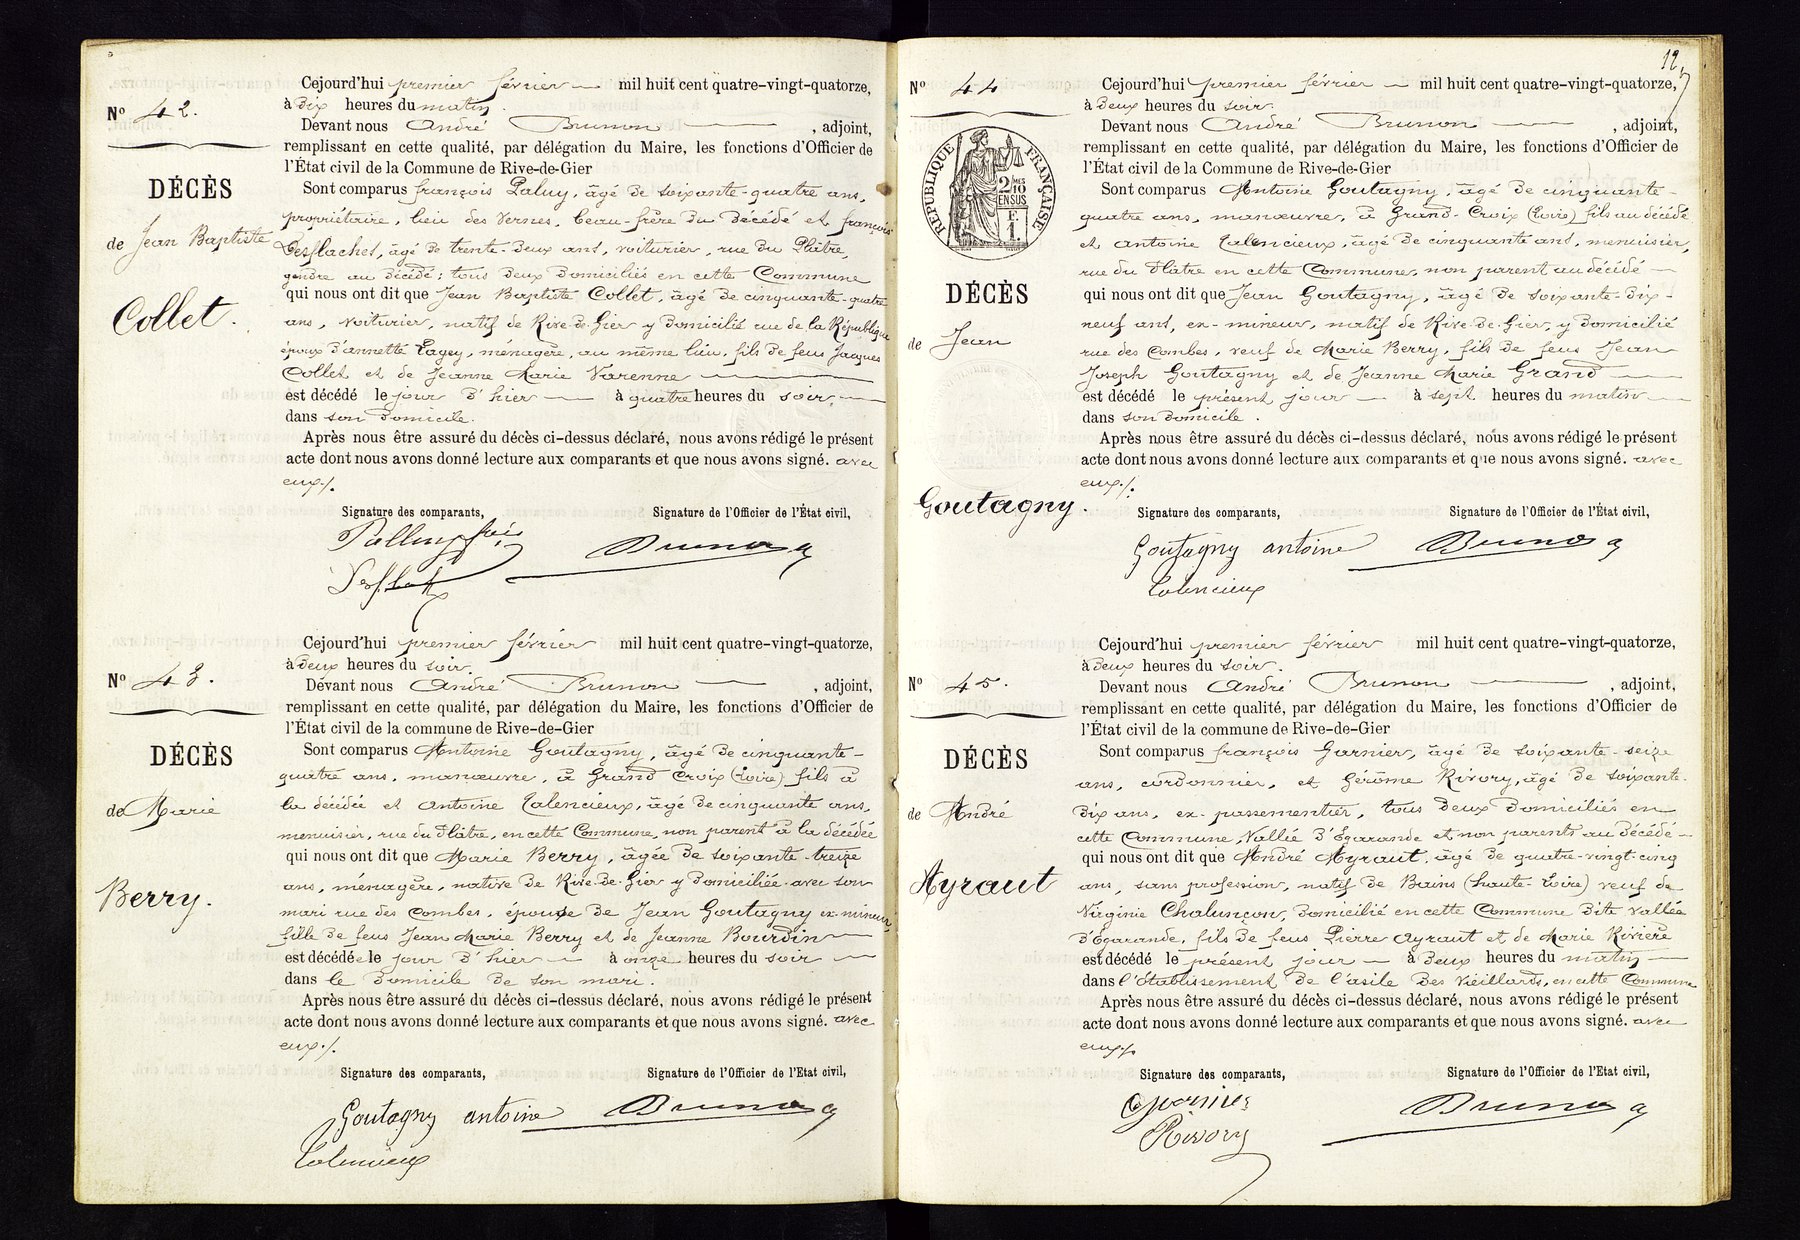 Cejourd'hui premier février mil huit cent quatre-vingt-quatorze,
à dix heures du matin.
Nº 42.
Devant nous André Brunon , adjoint,
remplissant en cette qualité, par délégation du Maire, les fonctions d'Officier de
l'État civil de la Commune de Rive-de-Gier
DÉCÈS
Sont comparus françois Paluy, âgé de soixante-quatre ans,
propriétaire, lieu des Vernes, beau-frère du décédé et françois
de Jean Baptiste
Desflaches, âgé de trente-deux ans, voiturier, rue du Plâtre,
gendre au décédé; tous deux domiciliés en cette Commune
qui nous ont dit que Jean Baptiste Collet, âgé de cinquante-quatre
Collet.
ans, voiturier, natif de Rive-de-Gier y domicilié rue de la République
époux d'annette Pagey, ménagère, au même lieu, fils de feus Jacques
Collet et de Jeanne Marie Varenne
est décédé le jour d'hier à quatre heures du soir,
dans son domicile.
Après nous être assuré du décès ci-dessus déclaré, nous avons rédigé le présent
acte dont nous avons donné lecture aux comparants et que nous avons signé. avec
eux./.
Signature des comparants, Signature de l'Officier de l'État civil,
Brunon
Cejourd'hui premier février mil huit cent quatre-vingt-quatorze,
à deux heures du soir.
Nº 43.
Devant nous André Brunon , adjoint,
remplissant en cette qualité, par délégation du Maire, les fonctions d'Officier de
l'État civil de la commune de Rive-de-Gier
DÉCÈS
Sont comparus Antoine Goutagny, âgé de cinquante-
quatre ans, manœuvre, à Grand Croix (Loire) fils à
de Marie
la décédée et Antoine Talencieux, âgé de cinquante ans,
menuisier, rue du Plâtre, en cette Commune, non parent à la décédée
qui nous ont dit que Marie Berry, âgée de soixante-treize
Berry.
ans, ménagère, native de Rive-de-Gier y domiciliée avec son
mari rue des Combes, épouse de Jean Goutagny ex-mineur,
fille de feus Jean Marie Berry et de Jeanne Bourdin
est décédée le jour d'hier à onze heures du soir
dans le domicile de son mari.
Après nous être assuré du décès ci-dessus déclaré, nous avons rédigé le présent
acte dont nous avons donné lecture aux comparants et que nous avons signé. avec
eux./.
Signature des comparants, Signature de l'Officier de l'Etat civil,
Goutagny antoine Brunon
Talencieux
12
Cejourd'hui premier février mil huit cent quatre-vingt-quatorze,
Nº 44
à deux heures du soir.
Devant nous André Brunon , adjoint,
remplissant en cette qualité, par délégation du Maire, les fonctions d'Officier de
l'État civil de la Commune de Rive-de-Gier
RÉPUBLIQUE FRANÇAISE
2/10 MES
EN SUS
F.
1.
Sont comparus Antoine Goutagny, âgé de cinquante-
quatre ans, manœuvre, à Grand-Croix (Loire) fils au décédé
et Antoine Talencieux, âgé de cinquante ans, menuisier,
rue du Plâtre en cette Commune, non parent au décédé
DÉCÈS
qui nous ont dit que Jean Goutagny, âgé de soixante-dix-
neuf ans, ex-mineur, natif de Rive-de-Gier, y domicilié
de Jean
rue des Combes, veuf de Marie Berry, fils de feus Jean
Joseph Goutagny et de Jeanne Marie Grand
est décédé le présent jour à sept heures du matin
dans son domicile.
Après nous être assuré du décès ci-dessus déclaré, nous avons rédigé le présent
acte dont nous avons donné lecture aux comparants et que nous avons signé. avec
eux./.
Goutagny.
Signature des comparants, Signature de l'Officier de l'État civil,
Goutagny antoine Brunon
Talencieux
Cejourd'hui premier février mil huit cent quatre-vingt-quatorze,
à deux heures du soir.
Nº 45.
Devant nous André Brunon , adjoint,
remplissant en cette qualité, par délégation du Maire, les fonctions d'Officier de
l'État civil de la commune de Rive-de-Gier
DÉCÈS
Sont comparus françois Garnier, âgé de soixante-seize
ans, cordonnier, et Gérôme Rivory, âgé de soixante-
de André
dix ans, ex-passementier, tous deux domiciliés en
cette Commune, Vallée d'Égarande et non parents au décédé
qui nous ont dit que André Ayraut, âgé de quatre-vingt-cinq
Ayraut
ans, sans profession, natif de Bains (haute-Loire) veuf de
Virginie Chalunçon, domicilié en cette Commune dite vallée
d'Égarande, fils de feus Pierre Ayraut et de Marie Rivière
est décédé le présent jour à deux heures du matin
dans l'établissement de l'asile des Vieillards, en cette Commune
Après nous être assuré du décès ci-dessus déclaré, nous avons rédigé le présent
acte dont nous avons donné lecture aux comparants et que nous avons signé. avec
eux./.
Signature des comparants, Signature de l'Officier de l'Etat civil,
Garnier Brunon
Rivory